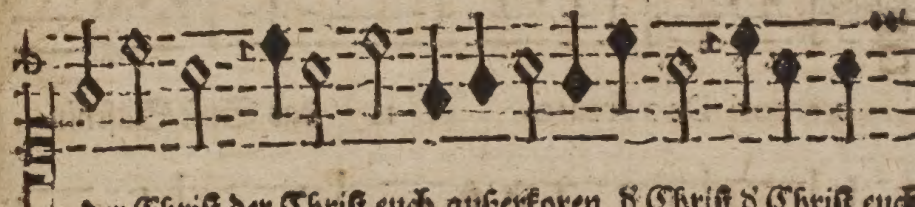 der Chriſt der Chriſt euch außerkoren, d̓ Chriſt d̓ Chriſt euch